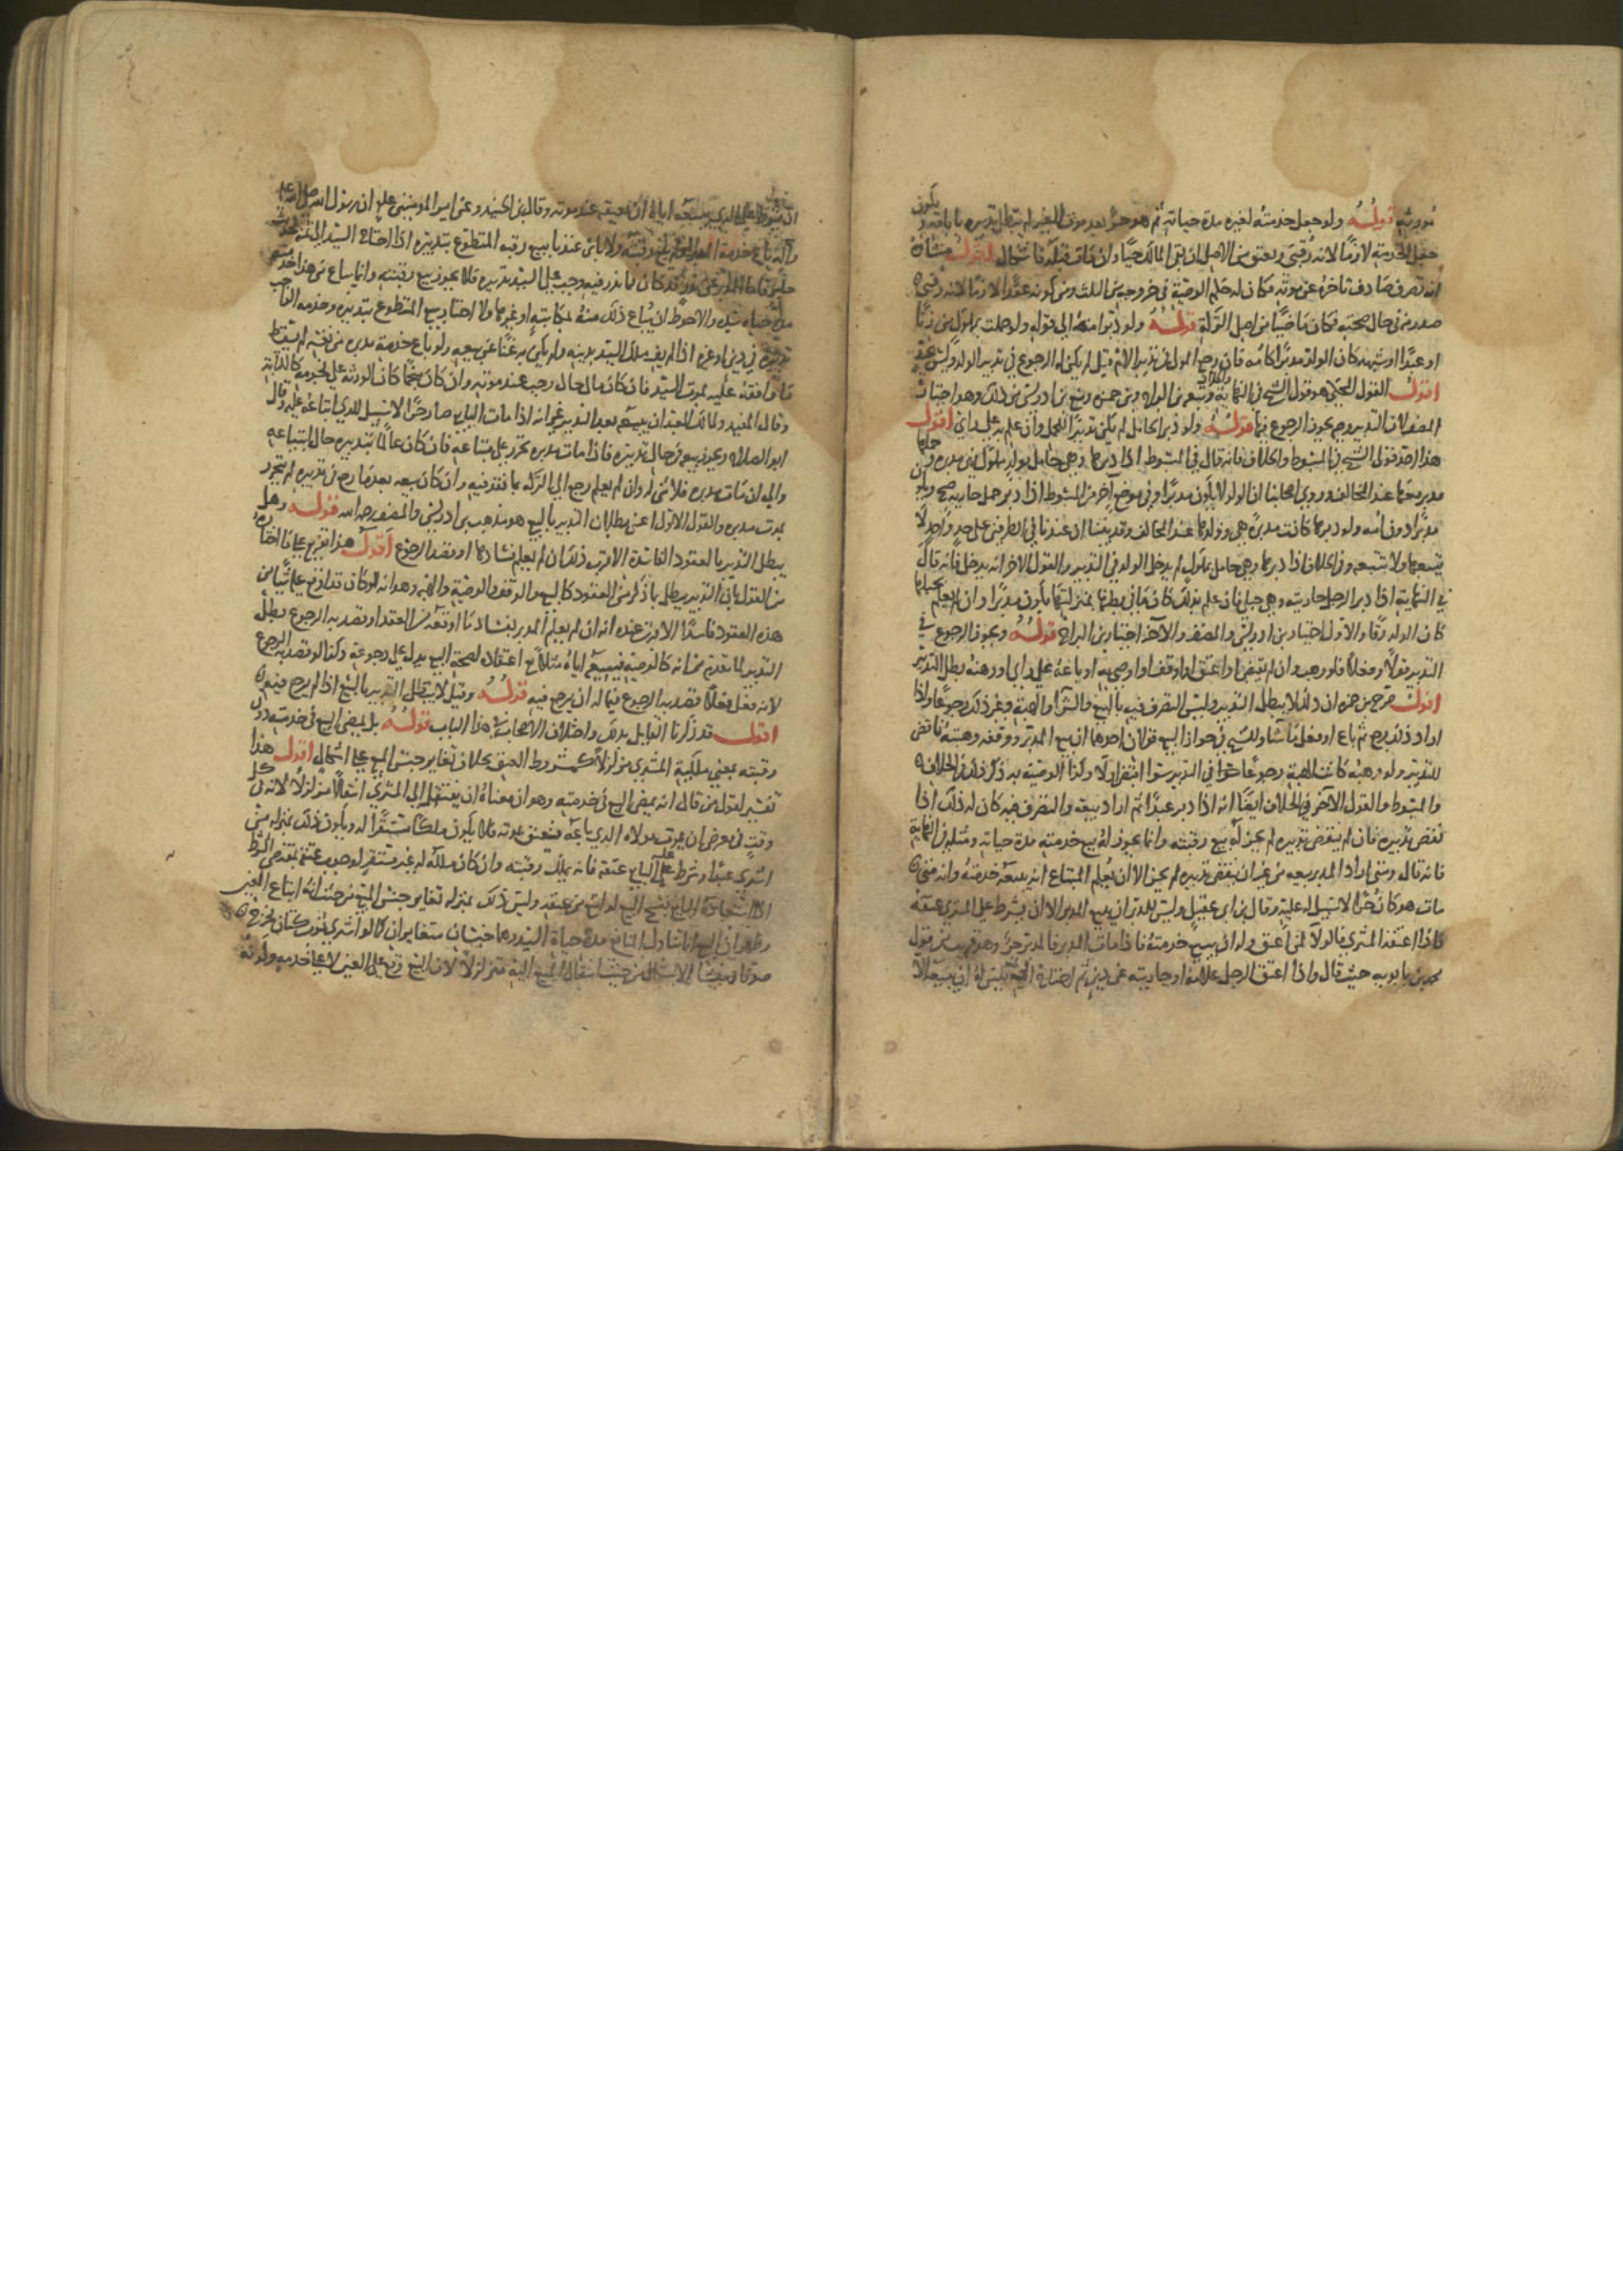 قوله ولو جعل خدمته لغيره مدة حياته ثم هو حر بعد موت الغير لم يبطل تدبيره باباقه
جعل الخدمة لازما لانه رقبى ويعتق من الاصل ان بقى المالك حيا وان مات قبله فاشكال اقول منشاه
انه تصرف صادف تاخره عن موته فكان له حكم الوصية في خروجه من الثلث ومن كونه عقدا لازما لانه رقبى
صدر منه في حال صحته فكان ماضيا من اصل التركة قوله ولو دبر امته الى قوله ولو حملت بمملوك من زنا
او عقد او شبهة كان الولد مدبرا كامه فان رجع المولى في تدبير الام قيل لم يكن له الرجوع في تدبير الولد وليس بجيد
اقول القول المحكي هو قول الشيخ في النهاية وتبعه ابن البراج وابن حمزة ومنع ابن ادريس من ذلك وهو اختيار
المصنف لان التدبير وجه يجوز الرجوع فيها قوله ولو دبر الحامل لم يكن تدبيرا للحمل وان علم به على راي اقول
هذا احد قولى الشيخ في المبسوط والخلاف فانه قال في المبسوط اذا دبرها وهي حامل بولد مملوك فهي مدبرة وحملها
مدبر معها عند المخالف وروى اصحابنا ان الولد لا يكون مدبرا وفي موضع آخر من المبسوط اذا دبر حمل جاريته صح ويكون
مدبرا دون امه ولو دبرها كانت مدبرة هي وولدها عند المخالف وقد بينا ان عندنا في الطرفين على حد واحد لا
يتبعها ولا تتبعه وفي الخلاف اذا دبرها وهي حامل بمملوك لم يدخل الولد في التدبير والقول الاخر انه يدخل فانه قال
في النهاية اذا دبر الرجل جاريته وهي حبلى فان علم بذلك كان ما في بطنها بمنزلتها يكون مدبرا وان لم يعلم بحبلها
كان الولد رقا والاول اختيار ابن ادريس والمصنف والآخر اختيار ابن البراج قوله ويجوز الرجوع في
التدبير قولا وفعلا فلو وهب وان لم يقبض او اعتق او اوقف او اوصى به او باعه على راي او رهنه بطل التدبير
اقول صرح ابن حمزة ان ذلك لا يبطل التدبير وليس التصرف فيه بالبيع والشرا والهبة وغير ذلك رجوعا واذا
اراد ذلك رجع ثم باع او فعل ما شاء وللشيخ في جواز البيع قولان احدهما ان بيع المدبر ووقفه وهبته ناقض
للتدبير ولو وهبه كانت الهبة رجوعا في التدبير سوا اقبض او لا وكذا الوصية به ذكر ذلك في الخلاف
والمبسوط والقول الآخر في الخلاف ايضا انه اذا دبر عبدا ثم اراد بيعه والتصرف فيه كان له ذلك اذا
نقض تدبيره فان لم ينقض تدبيره لم يجز له بيع رقبته وانما يجوز له بيع خدمته مدة حياته ومثله في النهاية
فانه قال ومتى اراد المدبر بيعه من غير ان ينقض تدبيره لم يجز الا ان يعلم المبتاع انه يبيعه خدمته وانه متى
مات هو كان حرا لا سبيل له عليه وقال ابن ابي عقيل وليس للمدبر ان يبيع المدبر الا ان يشرط على المشتري عتقه
فاذا اعتقه المشتري فالولاء لمن اعتق وله ان يبيع خدمته فاذا مات المدبر فالمدبر حر وهو قريب من قول
محمد بن بابويه حيث قال واذا اعتق الرجل غلامه او جاريته عن دبر منه ثم احتاج الى ثمنه فليس له ان يبيعه الا
ان يشترط على الذي يبيعه اياه ان يعتقه عند موته وقال ابن الجنيد وعن امير المؤمنين عليه ان رسول الله صلى الله عليه
وآله باع خدمة المدبر ولم يبع رقبته ولا باس عندنا ببيع رقبة المتطوع بتدبيره اذا احتاج السيد الى ثمنه
فاما المدبر عن نذر قد كان ما نذر فيه وجب على السيد تدبيره فلا يجوز بيع رقبته وانما يباع من هذا خدمته
مدة حياة سيده والاحوط ان يباع ذلك منه بمكاتبة او غيرها ولا اختار بيع المتطوع بتدبيره وخدمة الواجب
تدبيره في دين او غيره اذا لم يف ملك السيد بدينه ولم يكن به غنا عن بيعه ولو باع خدمة مدبره من نفسه لم يسقط
ما وافقه عليه بموت السيد فان كان مال حال وجب عند موته وان كان منجما كان للورثة على نجومه كالكتابة
وقال المفيد ولمالك العبد ان يبيعه بعد التدبير غير انه اذا مات البايع صار حرا لا سبيل للذي ابتاعه عليه وقال
ابو الصلاح ويجوز بيعه في حال تدبيره فاذا مات مدبره تحرر على مبتاعه فان كان عالما بتدبيره حال ابتياعه
واليه ان مات مدبره فلا شيء له وان لم يعلم رجع الى التركة بما نقد فيه وان كان بيعه بعد ما رجع في تدبيره لم يتحرر
بموت مدبره والقول الاول اعني بطلان التدبير بالبيع هو مذهب ابن ادريس والمصنف رحمه الله قوله وهل
يبطل التدبير بالعقود الفاسدة الاقرب ذلك ان لم يعلم فسادها او قصد الرجوع اقول هذا تفريع على ما اختاره
من القول بان التدبير يبطل بما ذكر من العقود كالبيع والوقف والوصية والهبة وهو انه لو كان قد اوقع عليه شيا من
هذه العقود فاسدا الاقرب عنده انه ان لم يعلم المدبر بفساد ما اوقعه من العقد او قصد به الرجوع بطل
التدبير لما تقدم من انه كالوصية فبيعه اياه مثلا مع اعتقاد لصحة البيع يدل على رجوعه وكذا لو قصد به الرجوع
لانه فعل فعلا قصد به الرجوع فيما له ان يرجع فيه قوله وقيل لا يبطل التدبير بالبيع اذا لم يرجع فيه
اقول قد ذكرنا القايل بذلك واختلاف الاصحاب في هذا الباب قوله بل يمضى البيع في خدمته دون
رقبته بمعنى ملكية المشتري متزلزلا كمشروط العتق بخلاف تغاير جنس المبيع على اشكال اقول هذا
تفسير لقول من قال انه يمضى البيع في خدمته وهو ان معناه ان ينتقل الى المشتري انتقالا متزلزلا لانه في كل
وقت في معرض ان يموت مولاه الذي باعه فيعتق بموته فلا يكون ملكا مستقرا له ويكون ذلك بمنزلة من
اشترى عبدا وشرط عليه البايع عتقه فانه يملك رقبته وان كان ملكه له غير مستقر لوجوب عتقه بمقتضى الشرط
البايع فسخ البيع لو امتنع من عتقه وليس ذلك بمنزلة تغاير جنس المبيع من حيث انه ابتاع العين
وظهر ان البيع انما تناول المنافع مدة حياة السيد وهما جنسان متغايران كما لو اشترى ثوب كتان فخرج
صوفا ومنشا الاشكال من حيث انتقال المبيع اليه متزلزلا لان البيع وقع على العين لا على خدمته ولانه